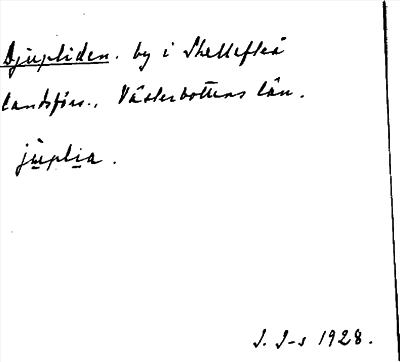 Djupliden. by i Skellefteå
landsförs., Västerbottens län.
jùplia.
J. J-s 1928.